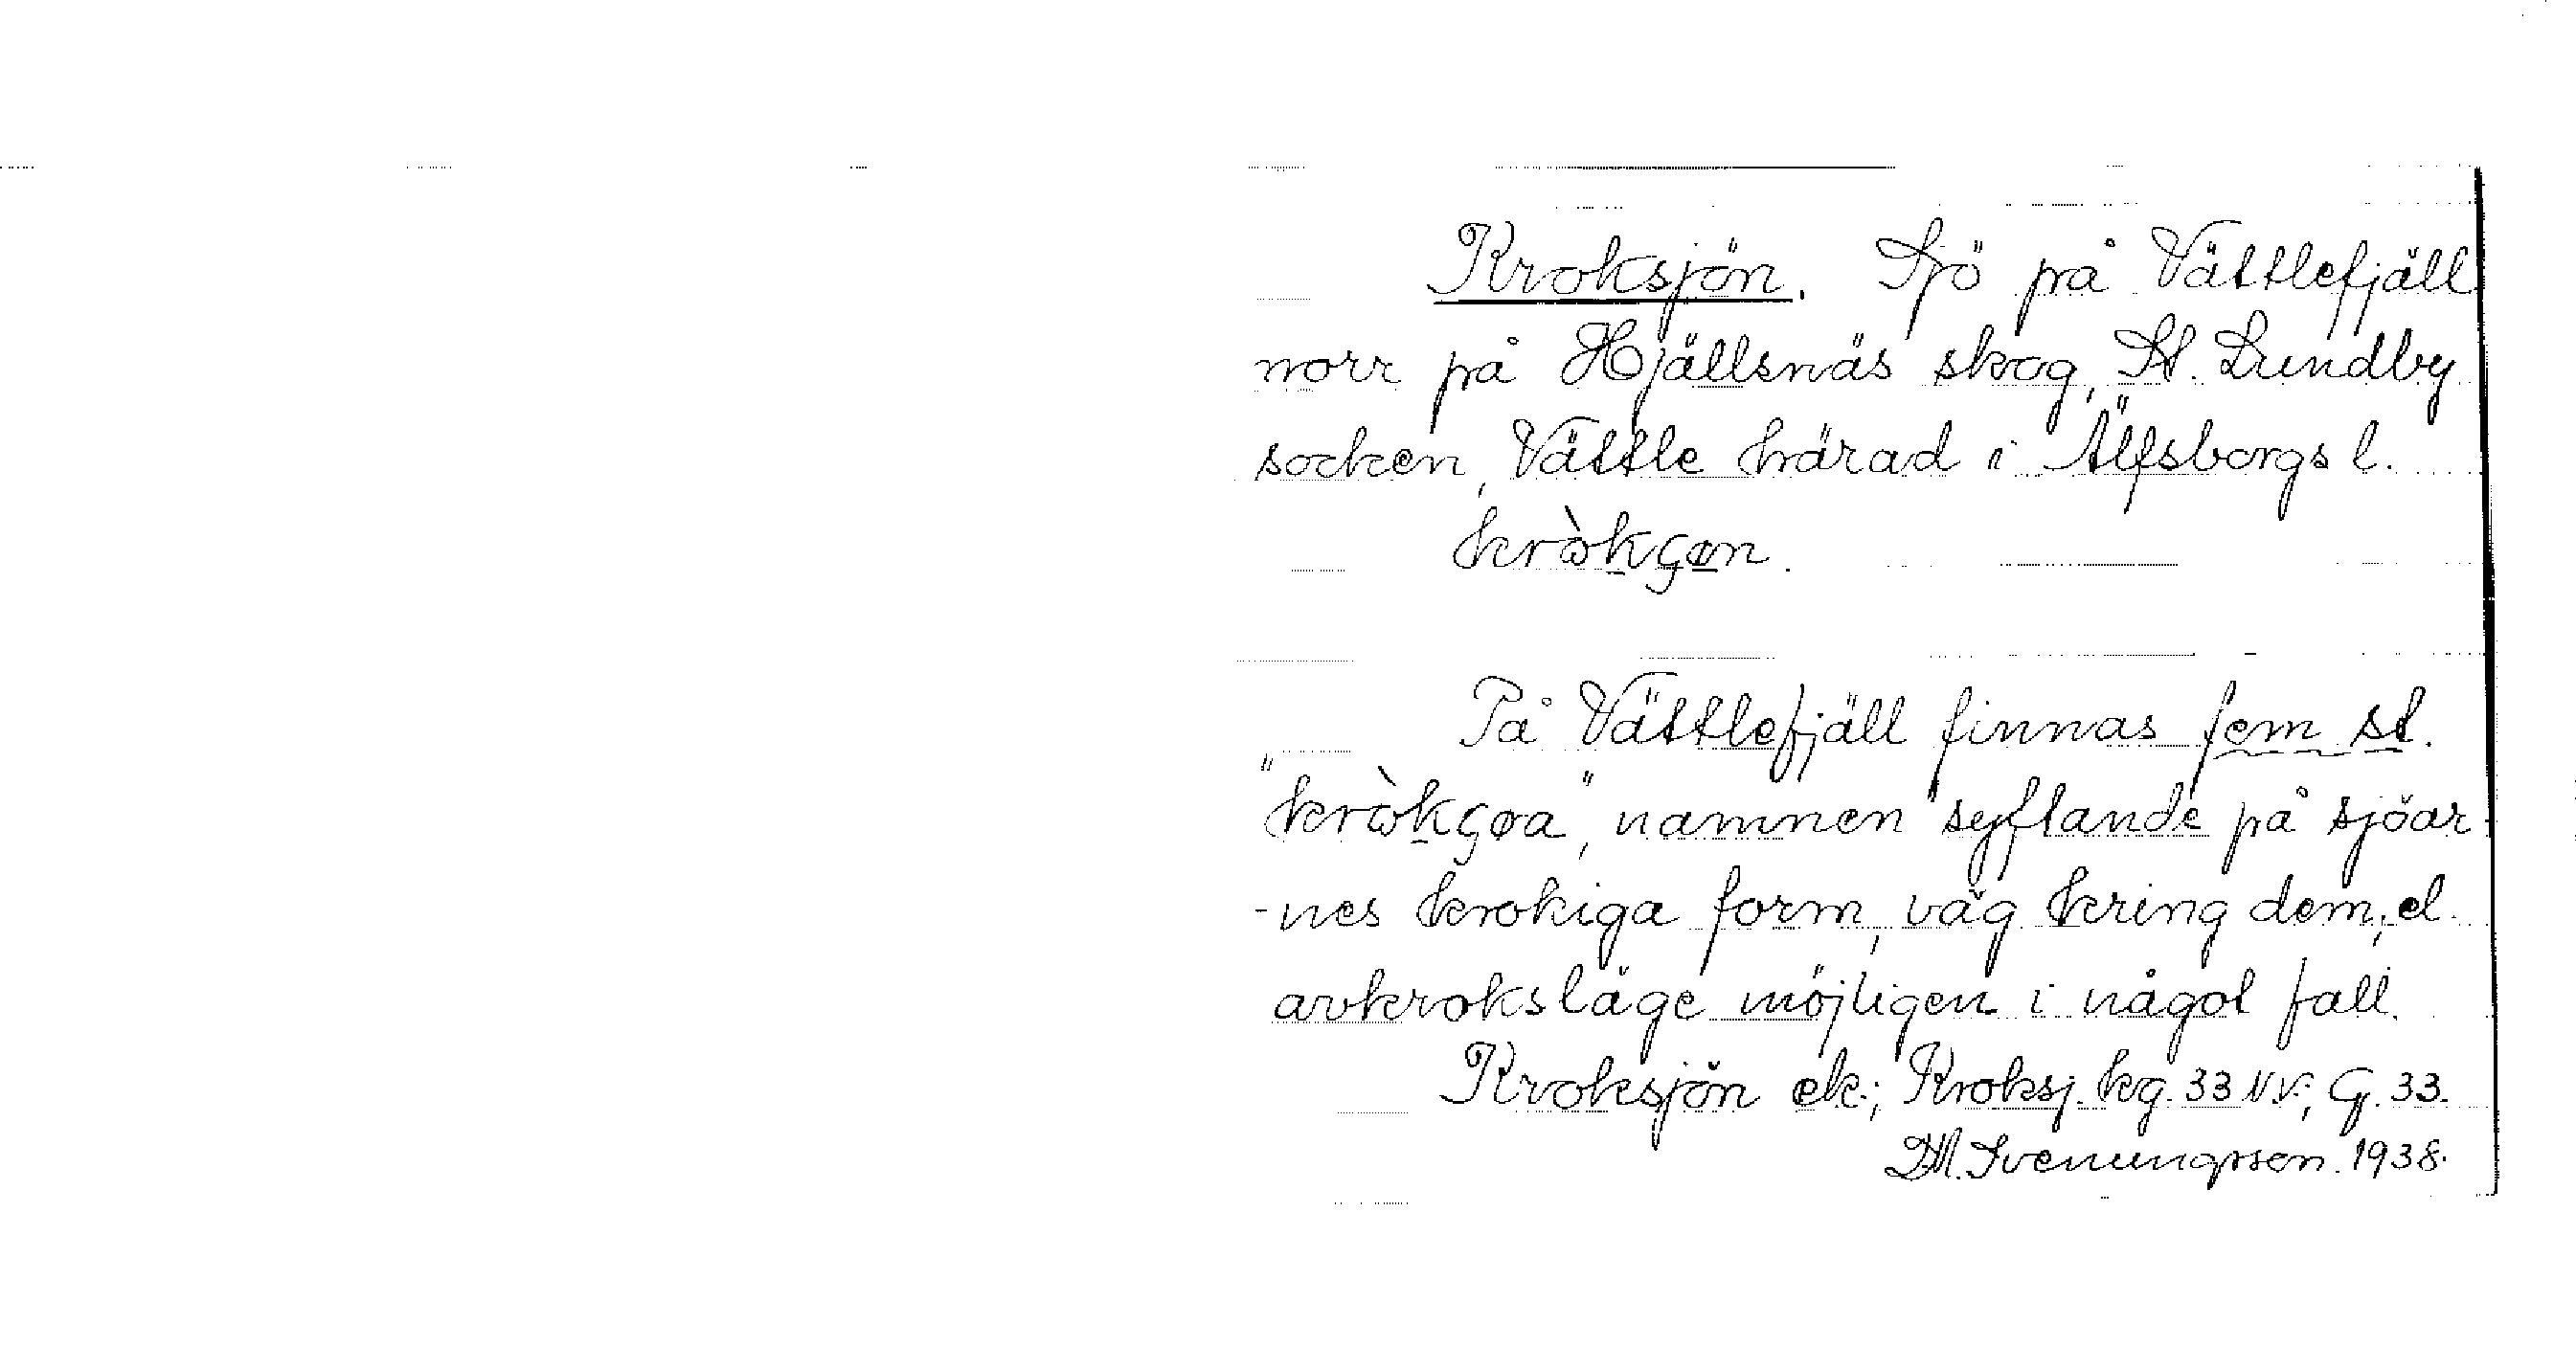 Kroksjön. Sjö på Vättlefjäll
norr på Hjällsnäs skog, St. Lundby
socken, Vättle härad i Älfsborgs l.
kròkʂøn.
På Vättlefjäll finnas fem st.
"kròkʂøa", namnen syftande på sjöar
-nes krokiga form, väg kring dem, el.
avkroksläge möjligen i något fall.
Kroksjön ek.; Kroksj. kg. 33 N.V.; G. 33.
Svenungsson. 1938.